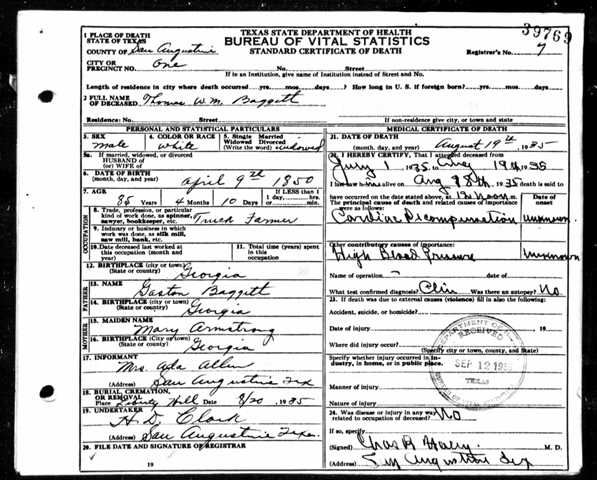 39769
TEXAS STATE DEPARTMENT OF HEALTH
BUREAU OF VITAL STATISTICS
STANDARD CERTIFICATE OF DEATH
Registrar's No. 7
1 PLACE OF DEATH
STATE OF TEXAS
COUNTY OF San Augustine
CITY OR
PRECINCT NO. One No. Street
If in an Institution, give name of Institution instead of Street and No.
Length of residence in city where death occurred yrs. mos. days? How long in U. S. if foreign born? yrs. mos. days?
2 FULL NAME
OF DECEASED Thomas W.M. Baggett
Residence: No. Street
If non-residence give city, or town and state
PERSONAL AND STATISTICAL PARTICULARS
3. SEX
Male
4. COLOR OR RACE
White
5. Single Married
Widowed Divorced
(Write the word) widowed
5a. If married, widowed, or divorced
HUSBAND of
(or) WIFE of
6. DATE OF BIRTH
(month, day, year) April 9th 1850
7. AGE
85 Years 4 Months 10 Days
IF LESS than 1
day hrs. min.
OCCUPATION
8. Trade, profession, or particular
kind of work done, as spinner,
sawyer, bookkeeper, etc. Truck Farmer
9. Industry or business in which
work was done, as silk mill,
saw mill, bank, etc.
10. Date deceased last worked at
this occupation (month and
year)
11. Total time (years) spent in
this occupation.
12. BIRTHPLACE (city or town)
(State or county) Georgia
FATHER
13. NAME
Gaston Baggett
14. BIRTHPLACE (city or town)
(State or county) Georgia
MOTHER
15. MAIDEN NAME
Mary Armstrong
16. BIRTHPLACE (city or town)
(State or county) Georgia
17. INFORMANT
Mrs. Ada Allen
(Address) San Augustine Tex
18. BURIAL, CREMATION,
OR REMOVAL
Place Liberty Hill Date 8/20 1935
19. UNDERTAKER
H.D. Clark
(Address) San Augustine Texas.
20. FILE DATE AND SIGNATURE OF REGISTRAR
19
MEDICAL CERTIFICATE OF DEATH
21. DATE OF DEATH
(month, day, year) August 19th, 1935
22. I HEREBY CERTIFY, That I attended deceased from
1 1935 to Aug 19th 1935
I last saw h alive on Aug 1935 death is said to
have occurred on the date stated above, at 12 noon m.
The principal cause of death and related causes of importance
were as follows:
Date of
onset
Cardiac Decompensation unknown
Other contributory causes of importance:
High Blood Pressure unknown
Name of operation -
What test confirmed diagnosis? Clin Was there an autopsy? No
23. If death was due to external causes (violence) fill in also the following:
Accident, suicide, or homicide?
Date of injury 19
Where did injury occur?
(Specify city or town, county, and State)
Specify whether injury occurred in in-
dustry, in home, or in public place.
Manner of injury
Nature of injury
24. Was disease or injury in any way
related to occupation of deceased? No
If so, specify
(Signed) M. D.
(Address) San Augustine Tex
SEP 12 1935
TEXAS